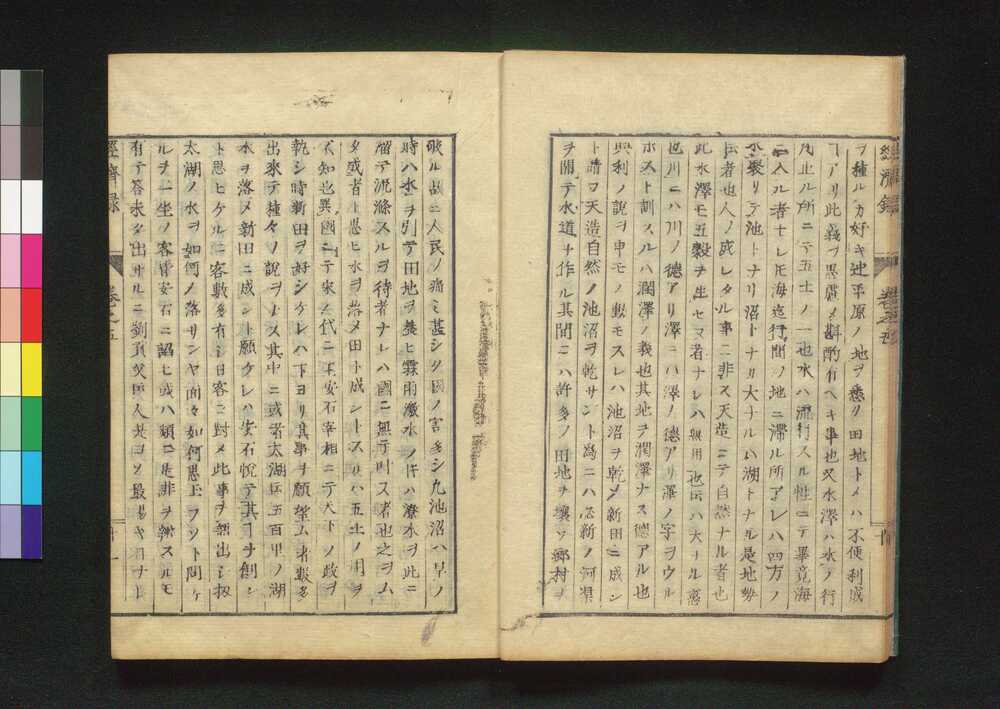 ヲ種ルカ好キ也平原ノ地ヲ悉ク田地トメハ不便利成
ヿアリ此義ヲ思慮メ斟酌有ヘキ事也又水澤ハ水ノ行
止ル所ニテ五土ノ一也水ハ流行スル性ニテ畢竟海
ニ入ル者ナレ𪜈海迄行間ノ地ニ滞ル所アレハ四方ノ
水聚リテ池トナリ沼トナリ大ナルハ湖トナル是地勢
者也人ノ成レタル事ニ非ス天造ニテ自然ナル者也
此水澤モ五穀ヲ生セヌ者ナレハ無用也ハ大ナル惑
也川ニハ川ノ德アリ澤ニハ澤ノ德アリ澤ノ字ヲウル
ホスト訓スルハ潤澤ノ義也其地ヲ潤澤ナス德アル也
興利ノ說ヲ申モノ動モスレハ池沼ヲ乾メ新田ニ成ン
ト請フ天造自然ノ池沼ヲ乾サント爲ニハ必新ノ河渠
ヲ開テ水道ヲ作ル其間ニハ許多ノ田地ヲ壞ツ鄉村ヲ
經濟錄
卷之五
破ル故ニ人民ノ痛ミ甚シク國ノ害多シ九池沼ハ旱ノ
時ハ水ヲ引テ田地ヲ養ヒ霖雨潦水ノ作ハ潦水ヲ此ニ
溜テ汎滌スルヲ待者ナレハ國ニ無テ叶ス者也之ヲム
タ成者ト思ヒ水ヲ落メ田ト成シトスルハ五土ノ用ヲ
不知也異國ニテ宋ノ代ニ王安石宰相ニテ天下ノ政ヲ
執シ時新田ヲ好シケレハ下ヨリ其事ヲ願望ム者數多
出來テ種々ノ說ヲ其中ニ或者太湖五百里ノ湖
水ヲ落メ新田ニ成シト願ケレハ安石悅テ其ヿヲ創ン
ト思ヒケルニ客數多有シ日客ニ對メ此事ヲ無出シ扨
太湖ノ水ヲ如何ノ落サンヤ面々如何思玉フソト問ケ
ルヲ一坐ノ客皆安石ニ諂ヒ或ハ頻ニ是非ヲ辨スルモ
有テ答未タ出サルニ劉貢父人是ヨリ最易キヿナ
經濟錄
卷之五